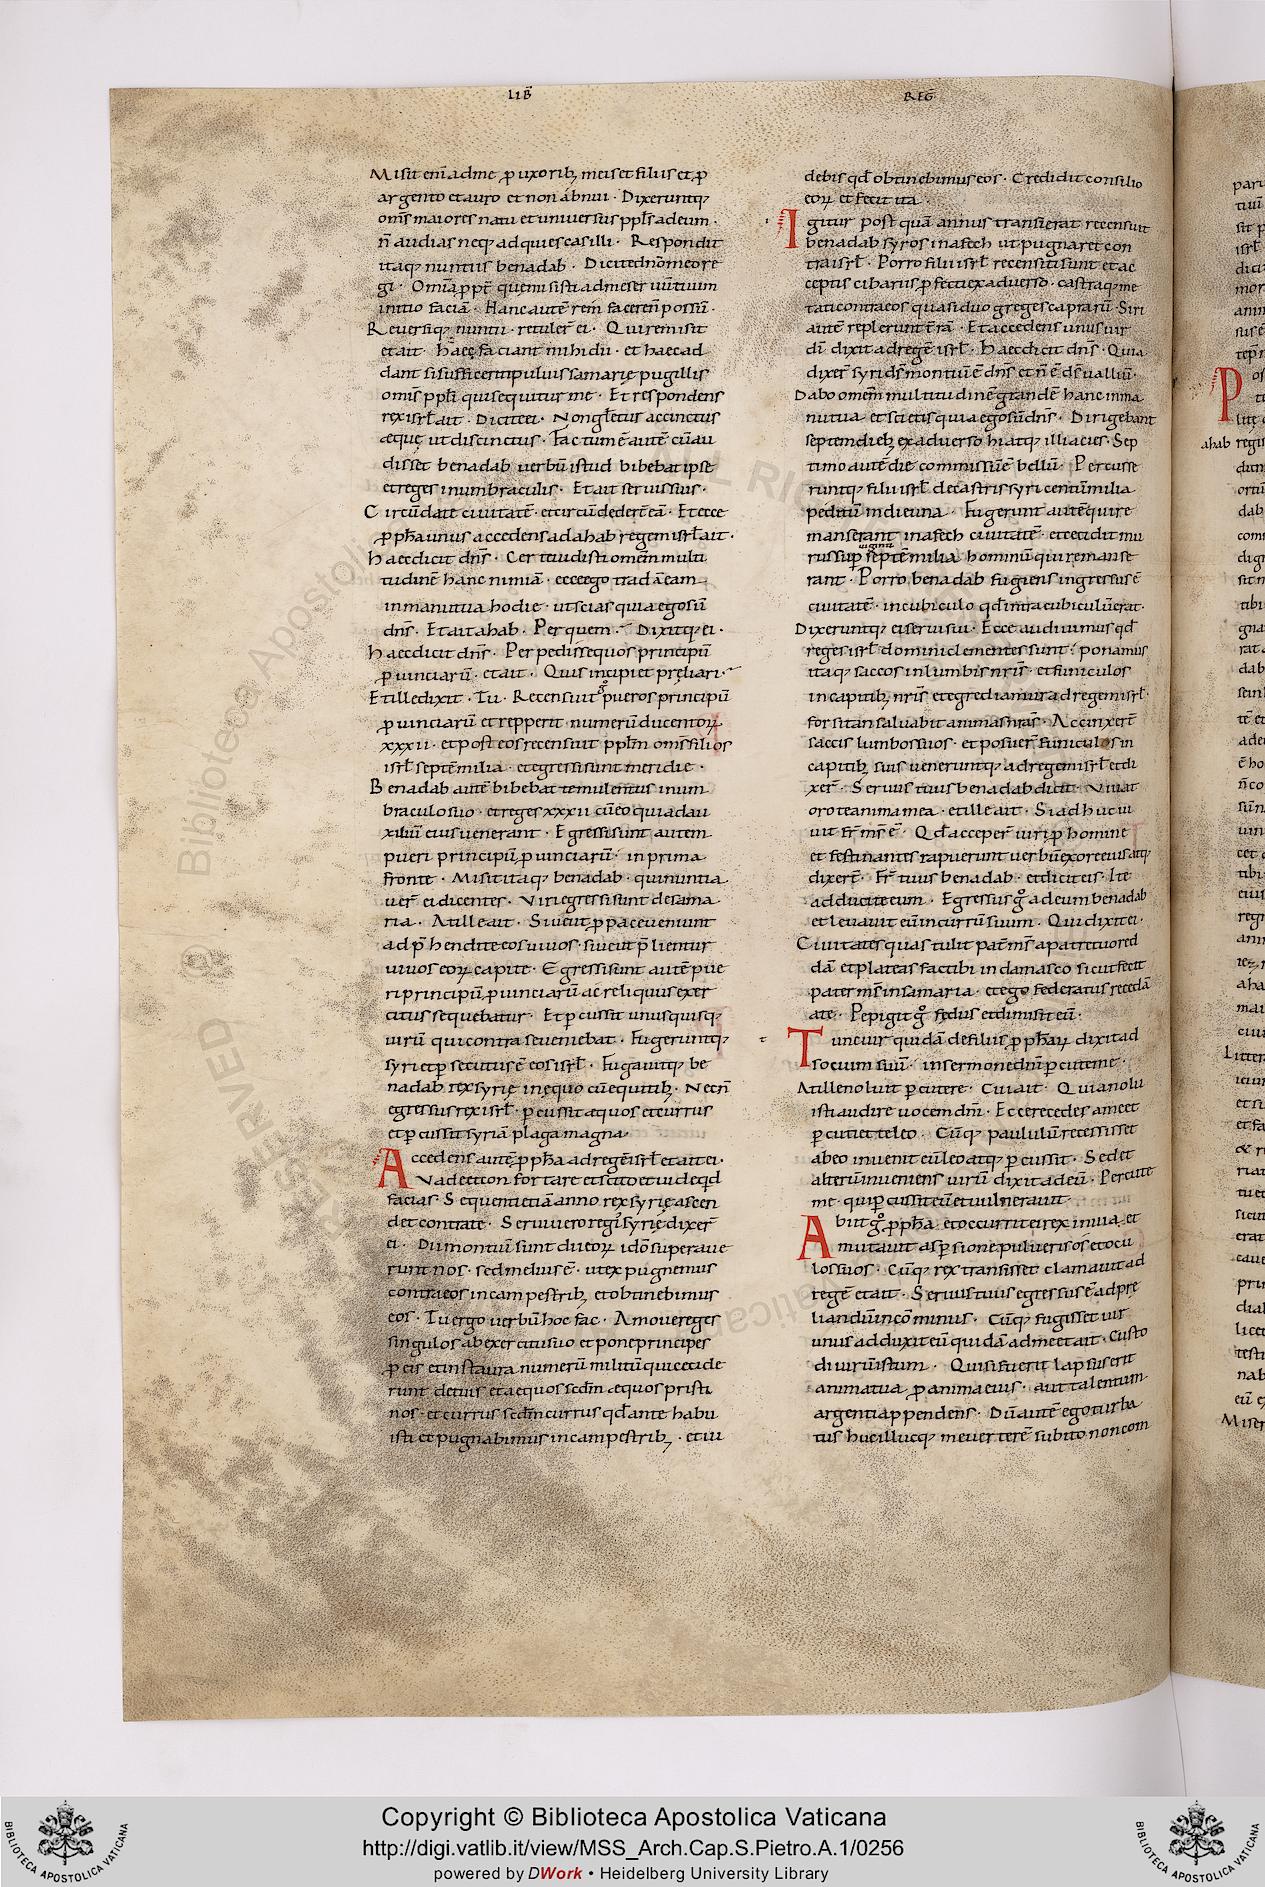 LIB̄
REḠ
Misit eni᷑ ad me ꝓ uxorib; meis et filiis et ꝓ
argento et auro et non abnui · Dixeruntq;
om̄s maiores natu et universus ppl̄s ad eum ·
n̄ audias neq; adquiescas illi · Respondit
itaq; nuntiis benadab · Dicite dn̄o meo re
gi · Omīa ꝓpt̄ que misisti ad me servū tuum
initio faciā · Hanc autē rem facere n̄ possū ·
Reversiq; nuntii · retulēr ei · Qui remisit
et ait · haec faciant mihi dii · et haec ad
dant si suffecerit pulvis samarię pugillis
omīs ppl̄i qui sequitur me · Et respondens
rex isrl̄ ait · Dicite ei · Non gl̄etur accinctus
æquę ut discinctus · Factum ē autē cū au
disset benadab verbū istud bibebat ipse
et reges in umbraculis · Et ait servis suis ·
Circūdate civitatē · et circūdederēt eā · Et ecce
ꝓpha unus accedens ad ahab regem isrl̄ ait ·
haec dicit dn̄s · Certe vidisti omēm multi
tudinē hanc nimiā · ecce ego tradā eam
in manu tua hodie · ut scias quia ego sū
dn̄s · Et ait ahab · Per quem · Dixitq; ei ·
haec dicit dn̄s · Per pedissequos principū
ꝓvinciarū · et ait · Quis incipiet pręliari ·
Et ille dixit · Tu · Recensuit g̊ pueros principū
ꝓvinciarū et repperit numerū ducentoꝝ
xxxii · et post eos recensuit ppl̄m om̄s filios
isrl̄ septē milia · et egressi sunt meridie ·
Benadab autē bibebat temulentus in um
braculo suo · et reges xxxii cū eo qui ad au
xiliū eius venerant · Egressi sunt autem
pueri principū ꝓvinciarū · in prima
fronte · Misit itaq; benadab · qui nuntia
vēr ei dicentes · Viri egressi sunt de sama
ria · At ille ait · Sive ut ꝓ pace veniunt
adp̄hendite eos vivos · sive ut p̄lientur
vivos eoꝝ capite · Egressi sunt autē pue
ri principū ꝓvinciarū ac reliquus exer
citus sequebatur · Et ꝑcussit unusquisq;
virū qui contra se veniebat · Fugeruntq;
syri et ꝑsecutus ē eos isrl̄ · Fugavitq; be
nadab rex syrię in equo cū equitib; · Necn̄
egressus rex isrl̄ · ꝑcussit æquos et currus
et ꝑcussit syriā plaga magna·
Accedens autē ꝓpha ad regē isrl̄ et ait ei ·
Vade et confortare et scito et vide qd̄
facias · Sequenti etiā anno rex syrię ascen
det contra te · Servi vero regī syrię dixēr
ei · Dii montiū sunt dii eoꝝ idō superave
runt nos · sed melius ē · ut ex pugnemus
contra eos in campestrib; et obtinebimus
eos · Tu ergo verbū hoc fac · Amove reges
singulos ab exercitu suo et pone principes
ꝓ eis et instaura numerū militū qui cecide
runt de tuis et aequos scdm̄ æquos pristi
nos · et currus scdm̄ currus qd̄ ante habu
isti et pugnabimus in campestrib; · et vi
debis qd̄ obtinebimus eos · Credidit consilio
eoꝝ et fecit ita ·
Igitur post quā annus transierat recensuit
benadab syros in afech ut pugnaret con
tra isrl̄ · Porro filii isrl̄ recensiti sunt et ac
ceptis cibariis ꝓfecti ex adverso · castraq; me
tati contra eos quasi duo greges caprarū · Siri
autē repleverunt t̄rā · Et accedens unus vir
dī dixit ad regē isrl̄ · Haec dicit dn̄s · Quia
dixēr syri ds̄ montiū ē dn̄s et n̄ ē ds̄ valliū ·
Dabo omēm multitudinē grandē hanc in ma
nu tua · et scietis quia ego sū dn̄s · Dirigebant
septem dieb; ex adverso hi atq; illi acies · Sep
timo autē die commissū ē bellū · Percusse
runtq; filii isrl̄ de castris syri centū milia
peditū in die una · Fugerunt autē qui re
manserant in afech civitatē · et cecidit mu
viginti
rus sup̄ septē milia hominū qui remanse
rant · Porro benadab fugiens ingressus ē
civitatē · in cubiculo qd̄ intra cubiculū erat ·
Dixeruntq; ei servi sui · Ecce audivimus qd̄
reges isrl̄ domini clementes sunt · ponamus
itaq; saccos in lumbis nr̄is · et funiculos
in capitib; nr̄is et egrediamur ad regem isrl̄ ·
forsitan salvabit animas nr̄as · Accinxerē
saccis lumbos suos · et posuēr funiculos in
capitib; suis veneruntq; ad regem isrl̄ et di
xēr · Servus tuus benadab dicit · Vivat
oro te anima mea · et ille ait · Si adhuc vi
vit fr̄ ms̄ ē · Qd̄ acceperē viri ꝓ homine
et festinantes rapuerunt verbū ex ore eius atq;
dixerē · Fr̄ tuus benadab · et dicit eis · Ite
adducite eum · Egressus g̊ ad eum benadab
et levavit eū in currū suum · Qui dixit ei ·
Civitates quas tulit pat̄ ms̄ a patre tuo red
dā · et plateas fac tibi in damasco sicut fecit
pater ms̄ in samaria · et ego federatus recedā
a te · Pepigit g̊ fędus et dimisit eū ·
Tunc vir quidā de filiis ꝓphaꝝ dixit ad
socium suū · in sermone dn̄i ꝑcute me ·
At ille noluit ꝑcutere · Cui ait · Quia nolu
isti audire vocem dn̄i · Ecce recedes a me et
ꝑcutiet te leo · Cūq; paululū recessisset
ab eo invenit eū leo atq; ꝑcussit · Sed et
alterū inveniens virū dixit ad eū · Percute
me · qui ꝑcussit eū et vulneravit ·
Abiit g̊ ꝓpha et occurrit ei rex in via · et
mutavit asꝑsione pulveris os et ocu
los suos · Cūq; rex transisset clamavit ad
regē et ait · Servus tuus egressus ē ad pre
liandū in cominus · Cūq; fugisset vir
unus adduxit eū quidā ad me et ait · Custo
di virū istum · Qui si fuerit lapsus erit
anima tua ꝓ anima eius · aut talentum
argenti appendens · Dū autē ego turba
tus huc illucq; me verterē subito non com
ahab
Copyright © Biblioteca Apostolica Vaticana
http://digi.vatlib.it/view/MSS_Arch.Cap.S.Pietro.A.1/0256
powered by DWork • Heidelberg University Library
BIBLIOTECA APOSTOLICA VATICANA
BIBLIOTECA APOSTOLICA VATICANA